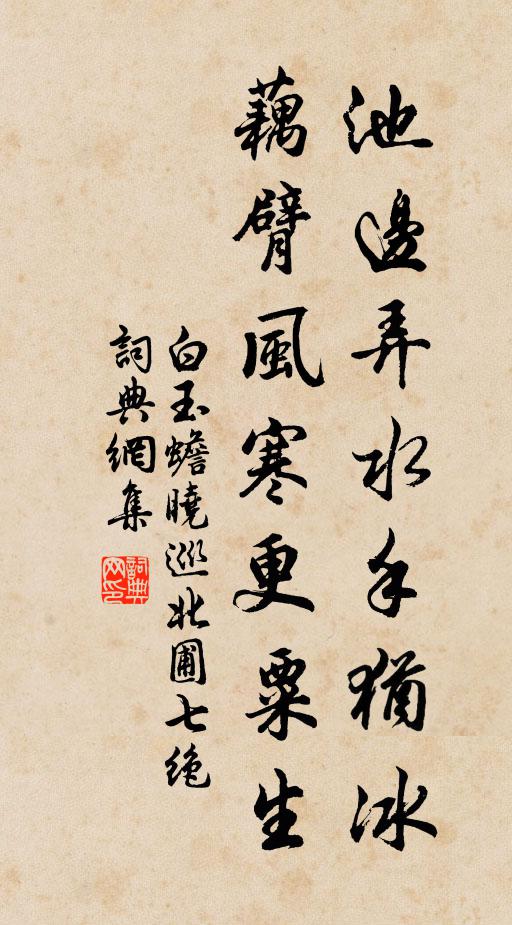 池邊弄水手猶冰
藕臂風寒更粟生
白玉蟾曉巡北圃七絕
詞典網集
詞典网印